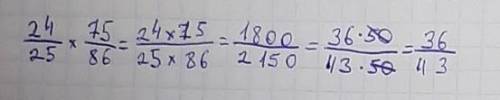 24/25 × 75/86 = 24×75/25×86 = 1800/2150 = 36·50/43·50 = 36/43